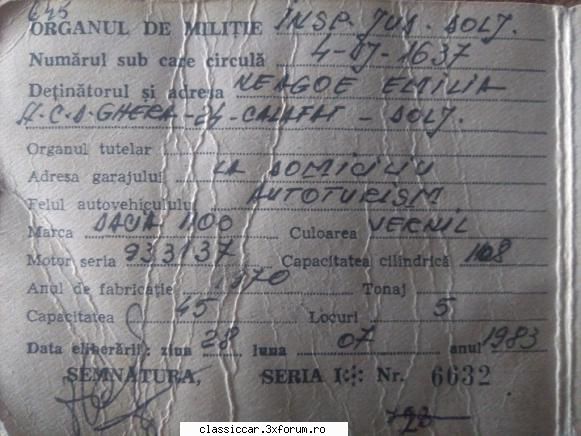 645
ORGANUL DE MILIȚIE INSP. JUD. DOLJ.
Numărul sub care circulă 4-DJ-1637
Deținătorul și adresa NEAGOE EMILIA
STR. C-D GHEREA - 24 - CALAFAT - DOLJ.
Organul tutelar
Adresa garajului LA DOMICILIU
Felul autovehiculului AUTOTURISM
Marca DACIA 1100 Culoarea VERNIL
Motor seria 933137 Capacitatea cilindrică 1108
Anul de fabricație 1970 Tonaj
Capacitatea 45 Locuri 5
Data eliberării: ziua 28 luna 07 anul 1983
SEMNĂTURA, SERIA I Nr. 6632
classiccar.3xforum.ro